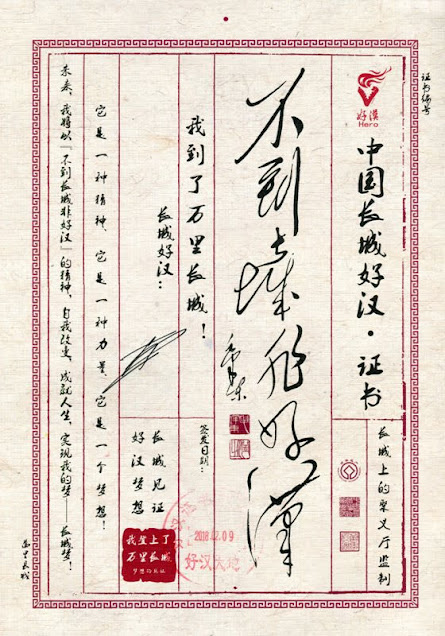 证书编号
好漢
Hero
中国长城好汉·证书
长城上的聚义厅监制
不到长城非好漢
毛泽东
签发日期:
我到了万里长城!
长城好汉:
长城见证
好汉梦想
2018.02.09
好汉大地
我登上了
万里长城
它是一种精神、它是一种力量、它是一个梦想!
未来,我将以「不到长城非好汉」的精神,自我改变,成就人生,实现我的梦——长城梦!
万里长城